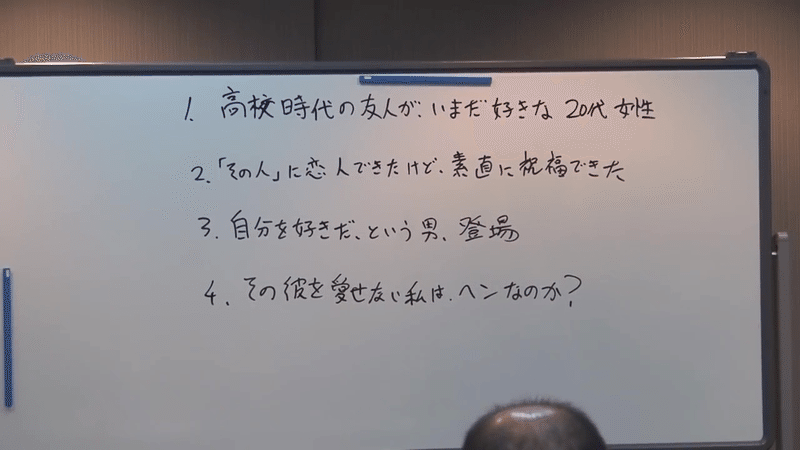 1. 高校時代の友人が、いまだ好きな 20代 女性
2.「その人」に恋人できたけど、素直に祝福できた
3. 自分を好きだ、という男、登場
4. その彼を愛せない私は、ヘンなのか？